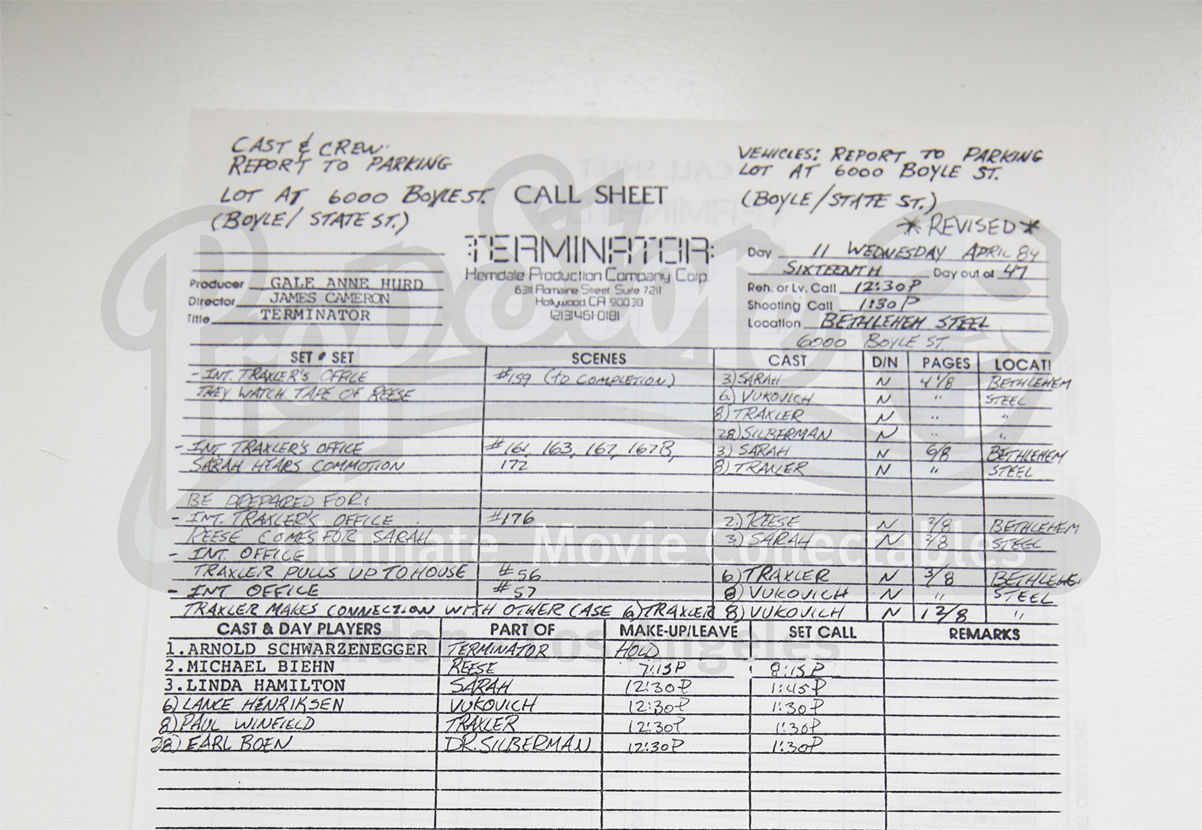 CAST & CREW:
REPORT TO PARKING
LOT AT 6000 BOYLE ST.
(BOYLE/ STATE ST.)
CALL SHEET
VEHICLES: REPORT TO PARKING
LOT AT 6000 BOYLE ST.
(BOYLE/STATE ST.)
*REVISED*
TERMINATOR:
Hemdale Production Company Corp.
6311 Romaine Street, Suite 7211
Hollywood, CA 90039
(213)461-0181
Producer GALE ANNE HURD
Director JAMES CAMERON
Title TERMINATOR
Day 11 WEDNESDAY APRIL 84
SIXTEENTH Day out of 47
Reh. or Lv. Call 12:30P
Shooting Call 1:30P
Location BETHLEHEM STEEL
6000 BOYLE ST.
SET # SET SCENES CAST D/N PAGES LOCATI
- INT. TRAXLER'S OFFICE #159 (TO COMPLETION) 3) SARAH N 4 1/8 BETHLEHEM
THEY WATCH TAPE OF REESE 6) VUKOVICH N " STEEL
8) TRAXLER N " "
28) SILBERMAN N " "
- INT. TRAXLER'S OFFICE #161, 163, 167, 167B, 3) SARAH N 6/8 BETHLEHEM
SARAH HEARS COMMOTION 172 8) TRAXLER N " STEEL
BE PREPARED FOR:
- INT. TRAXLER'S OFFICE #176 2) REESE N 2/8 BETHLEHEM
REESE COMES FOR SARAH 3) SARAH N 2/8 STEEL
- INT. OFFICE
TRAXLER PULLS UP TO HOUSE #56 6) TRAXLER N 3/8 BETHLEHE
- INT OFFICE #57 8) VUKOVICH N " STEEL
TRAXLER MAKES CONNECTION WITH OTHER CASE 6) TRAXLER 8) VUKOVICH N 1 2/8 "
CAST & DAY PLAYERS PART OF MAKE-UP/LEAVE SET CALL REMARKS
1. ARNOLD SCHWARZENEGGER TERMINATOR HOLD
2. MICHAEL BIEHN REESE 7:15P 8:15P
3. LINDA HAMILTON SARAH 12:30P 1:45P
6) LANCE HENRIKSEN VUKOVICH 12:30P 1:30P
8) PAUL WINFIELD TRAXLER 12:30P 1:30P
28) EARL BOEN DR. SILBERMAN 12:30P 1:30P
PropStore
Ultimate Movie Collectables
London Los Angeles